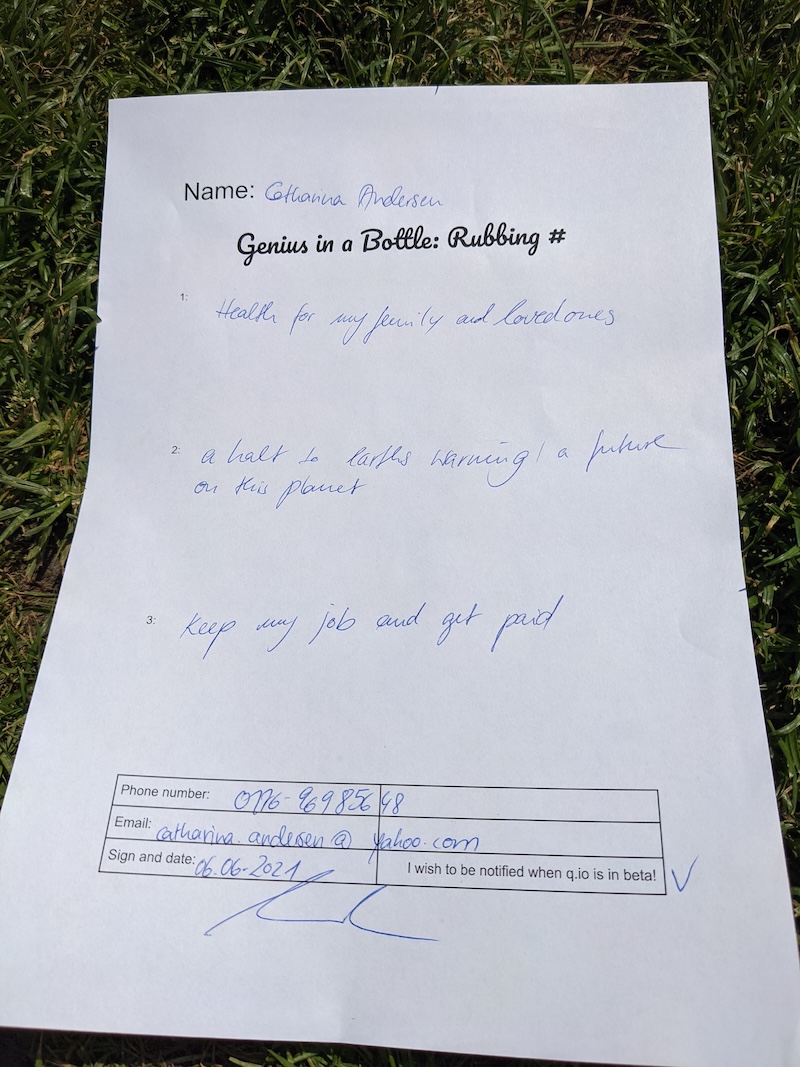 Name: Catharina Andersen
Genius in a Bottle: Rubbing #
1: Health for my family and loved ones
2: a halt to earths warming / a future
on this planet
3: Keep my job and get paid
Phone number: 0176-96985648
Email: catharina.andersen@yahoo.com
Sign and date: 06.06-2021 I wish to be notified when q.io is in beta! ✓